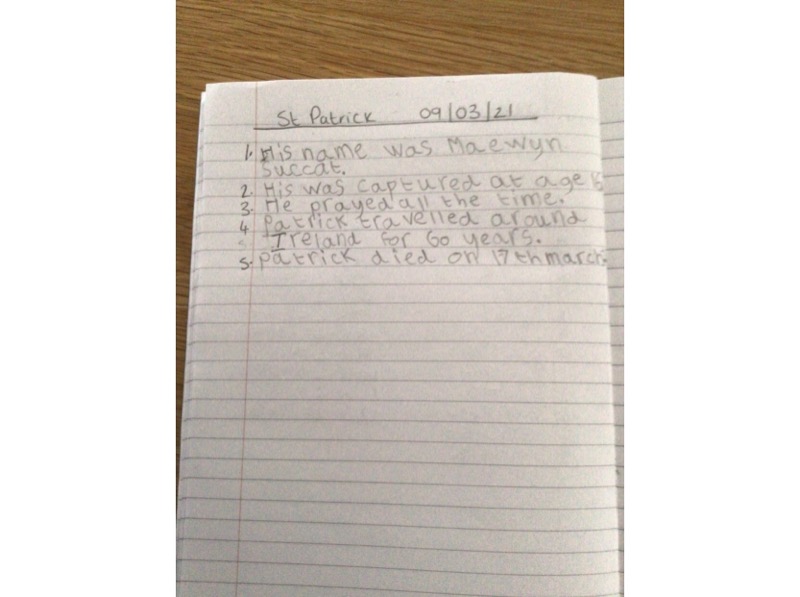 St Patrick 09/03/21
1. His name was Maewyn
Succat.
2. His was captured at age
3. He prayed all the time.
4 Patrick travelled around
Ireland for 60 years.
5. Patrick died on 17th march.